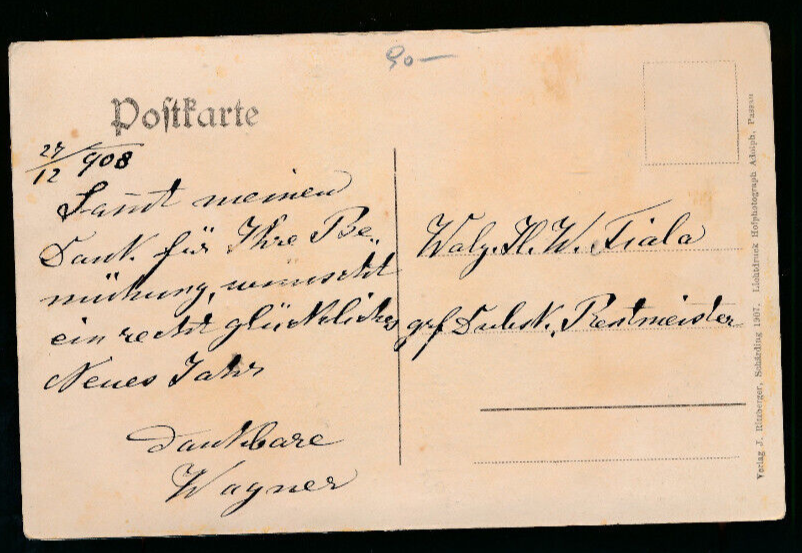 90—
Postkarte
27/12 908
Samt meinen
Dank für Ihre Be-
mühung, wünscht
ein recht glückliches
Neues Jahr
dankbare
Wagner
H. W. Fiala
grf Dubsk. Rentmeister
Verlag J. Ritzberger, Schärding 1907. Lichtdruck Hofphotograph Adolph, Passau